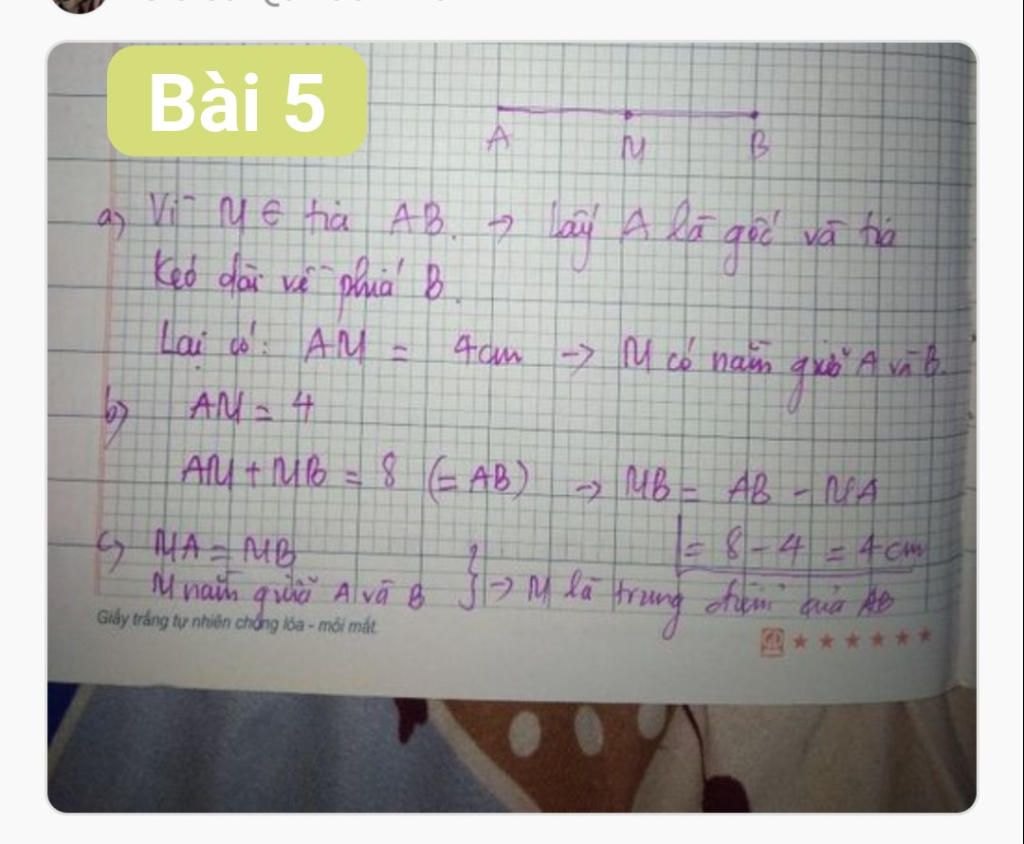 Bài 5
A M B
a) Vì M ∈ tia AB. → lấy A là gốc và tia
kéo dài về phía B.
Lại có: AM = 4cm → M có nằm giữa A và B.
b) AM = 4
AM + MB = 8 (= AB) → MB = AB - MA
= 8 - 4 = 4cm
c) MA = MB
M nằm giữa A và B } → M là trung điểm của AB
Giấy trắng tự nhiên chống lóa - mỏi mắt